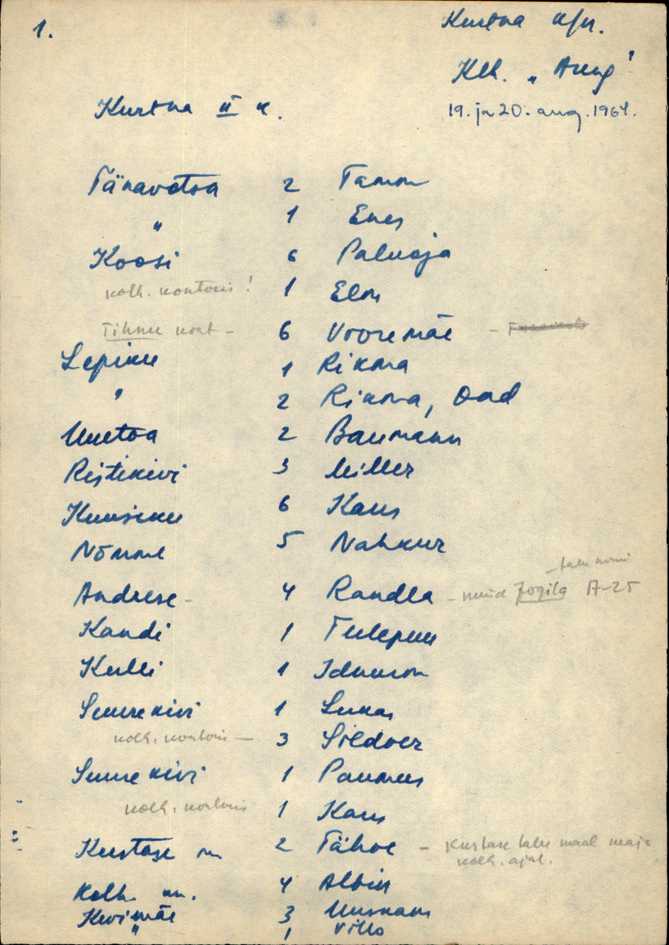 1.
Kurtna k/n.
Klh. „Areng"
19. ja 20. aug. 1964.
Kurtna II k.
Tänavotsa 2 Tamm
" 1 Enes
Koosi 6 Paluoja
kolh. kontoris! 1 Elm
Tihnu kont - 6 Vooremäe -
Lepiku 1 Rikma
" 2 Rikma, Oad
Uuetoa 2 Baumann
Ristikivi 3 Miller
Kuusiku 6 Kaus
Nõmme 5 Nahkur
talu nimi
Andrese - 4 Randla - nüüd Joogila A-25
Kandi 1 Tulepuu
Kulli 1 Idnurm
Suurekivi 1 Lukas
kolh. kontoris - 3 Sildver
Suurekivi 1 Paumus
kolh. kontoris 1 Kaus
Kustase m 2 Tähve - Kustase talu maal maja
kolh. ajal.
Kolh. m. 4 Albin
Kivimäe 3 Uusmans
" 1 Villo